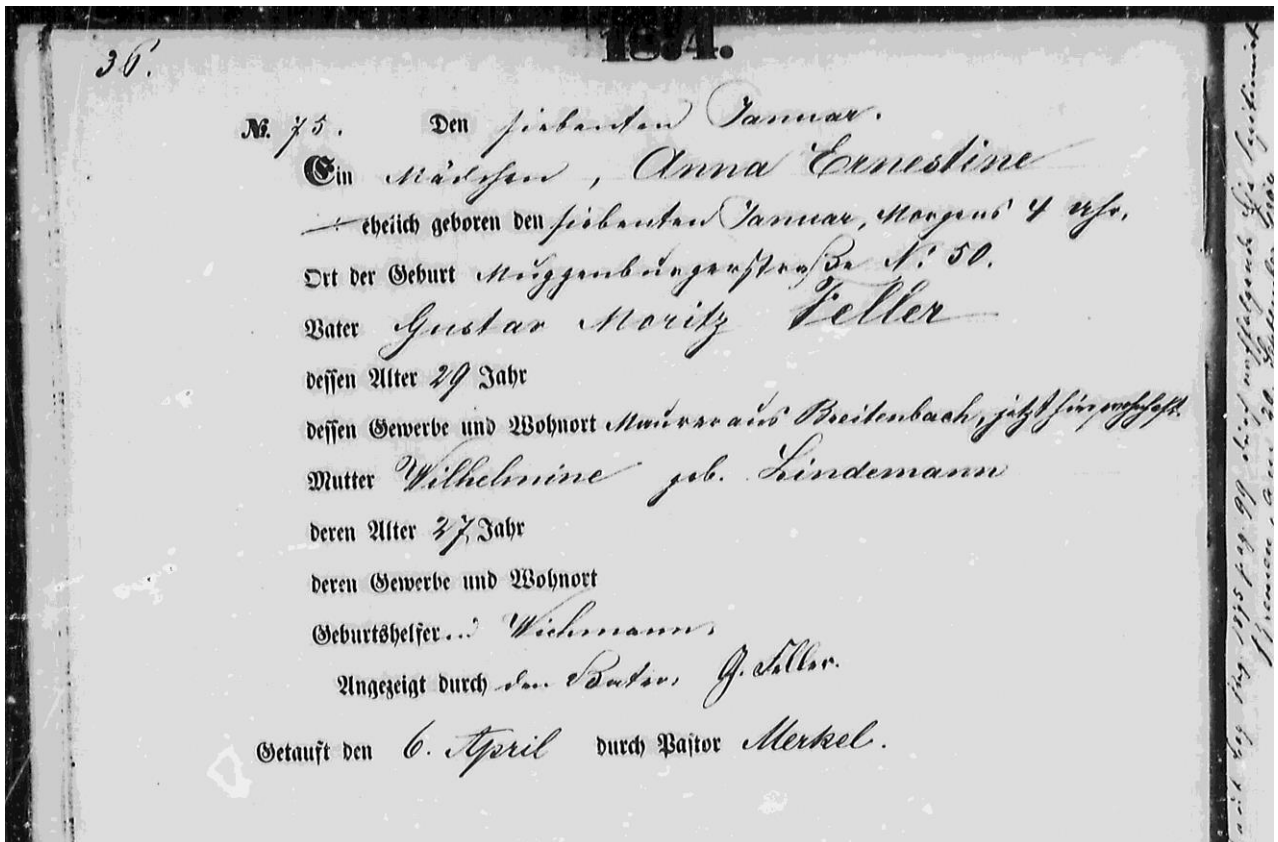 36.
1874.
No. 75. Den siebenten Januar.
Ein Mädchen, Anna Ernestine
ehelich geboren den siebenten Januar, Morgens 4 Uhr,
Ort der Geburt Muggenburgerstraße No. 50.
Vater Gustav Moritz Feller
dessen Alter 29 Jahr
dessen Gewerbe und Wohnort Maurer aus Breitenbach, jetzt hier wohnhaft
Mutter Wilhelmine geb. Lindemann
deren Alter 27 Jahr
deren Gewerbe und Wohnort
Geburtshelferin Wichmann.
Angezeigt durch den Vater. G. Feller.
Getauft den 6. April durch Pastor Merkel.
1875 pag 99 durch nachfolgende Ehe legitimirt
Bremen, am 20. September